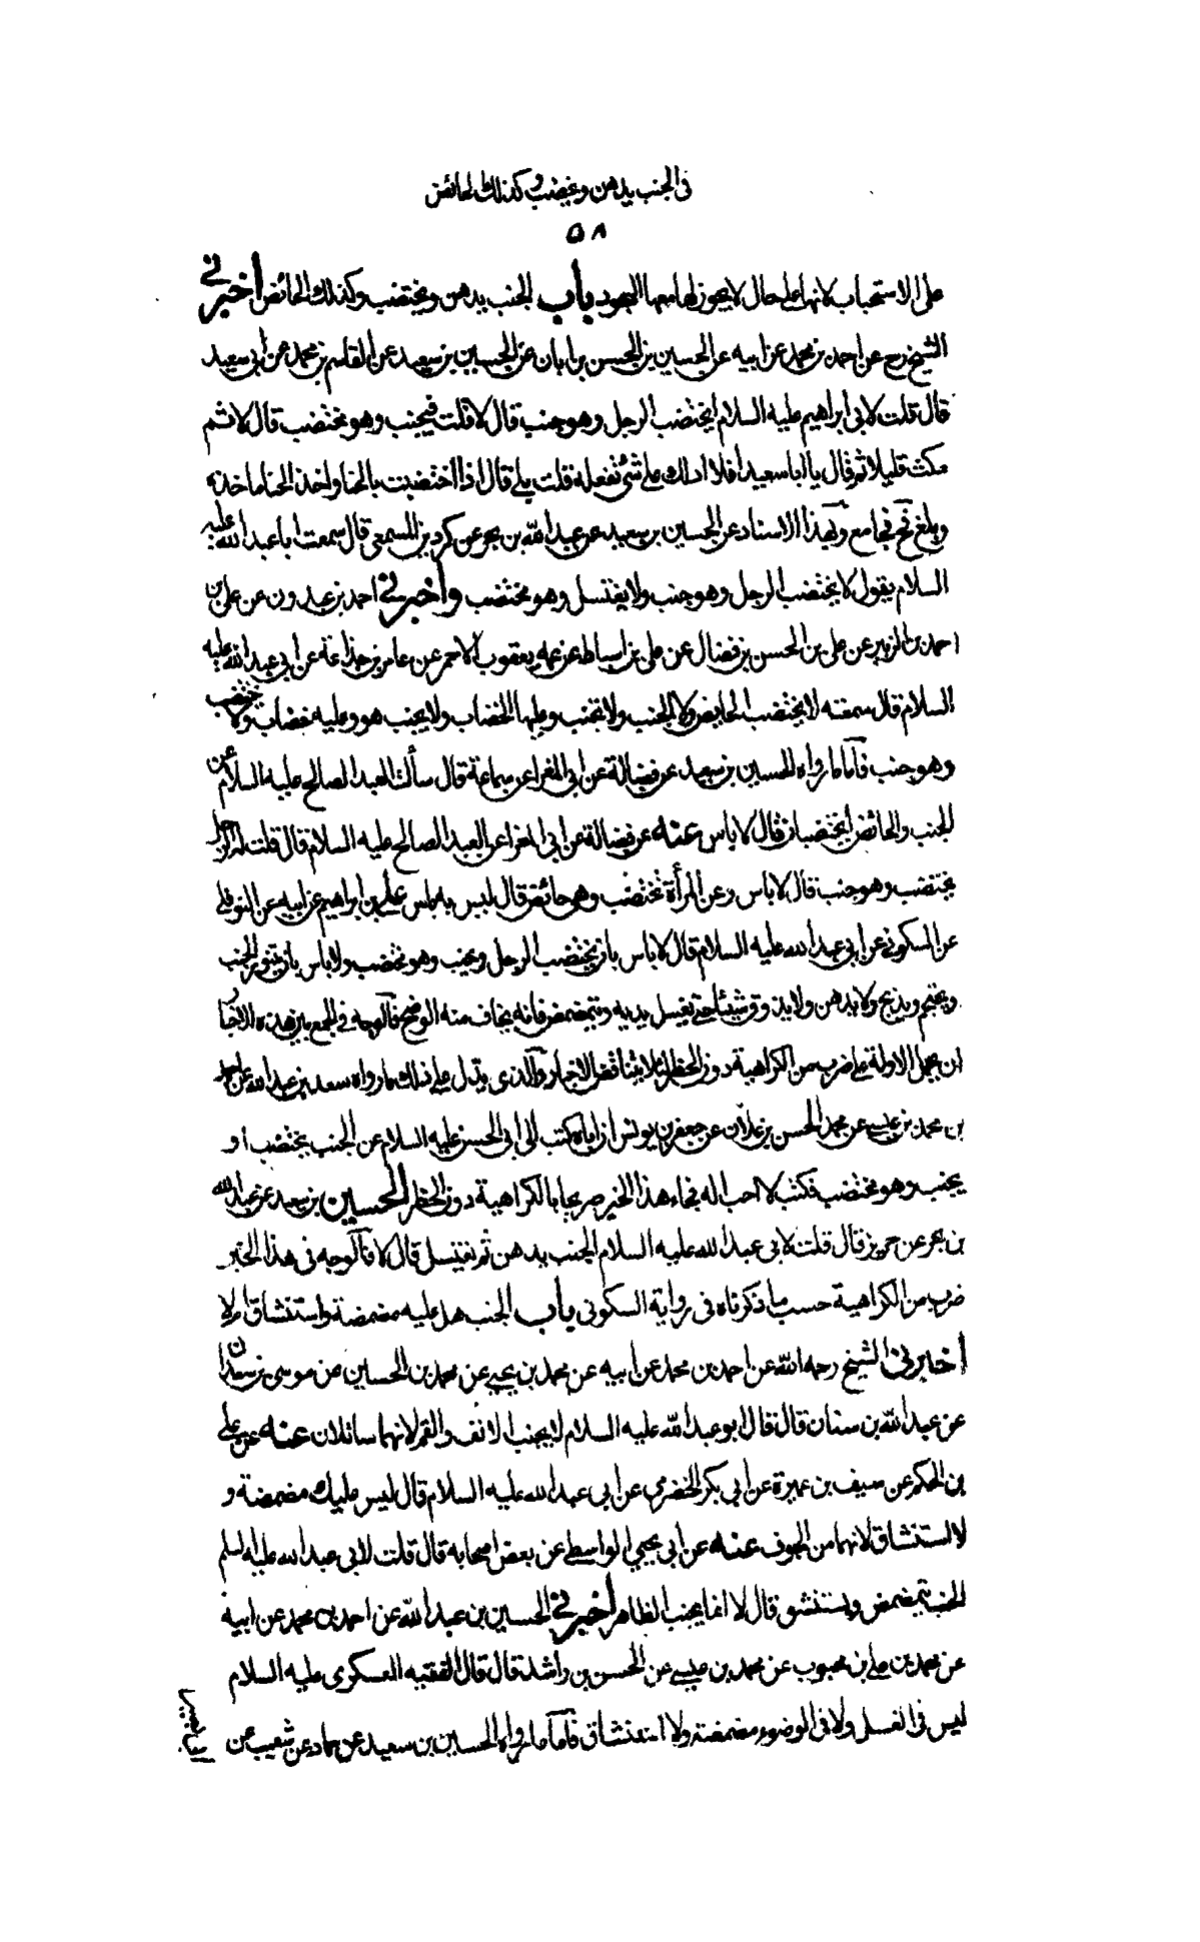 في الجنب يدهن ويخضب وكذلك الحائض
٥٨
على الاستحباب لانها على حال لا يجوز لها معها القعود باب الجنب يدهن ويختضب وكذلك الحائض اخبرني
الشيخ رح عن احمد بن محمد عن ابيه عن الحسين بن الحسن بن ابان عن الحسين بن سعيد عن القاسم بن محمد عن ابي سعيد
قال قلت لابي ابراهيم عليه السلام ايختضب الرجل وهو جنب قال لا قلت فيجنب وهو مختضب قال لا ثم
مكث قليلا ثم قال يا ابا سعيد افلا ادلك على شئ تفعله قلت بلى قال اذا اختضبت بالحنا واخذ الحنا ماخذه
وبلغ فح فجامع وبهذا الاسناد عن الحسين بن سعيد عن عبد الله بن بحر عن كردين المسمعي قال سمعت ابا عبد الله عليه
السلام يقول لا يختضب الرجل وهو جنب ولا يغتسل وهو مختضب واخبرني احمد بن عبدون عن علي بن
احمد بن الزبير عن علي بن الحسن بن فضال عن علي بن اسباط عن عمه يعقوب الاحمر عن عامر بن جذاعة عن ابي عبد الله عليه
السلام قال سمعته لا يختضب الحايض ولا الجنب ولا تجنب وعليها الخضاب ولا يجنب هو وعليه خضاب ولا يختضب
وهو جنب فاما ما رواه الحسين بن سعيد عن فضالة عن ابي المغرا عن سماعة قال سألت العبد الصالح عليه السلام عن
الجنب والحائض ايختضبان قال لا باس عنه عن فضالة عن ابي المغرا عن العبد الصالح عليه السلام قال قلت له الرجل
يختضب وهو جنب قال لا باس وعن المرأة تختضب وهي حائض قال ليس به باس علي بن ابراهيم عن ابيه عن النوفلي
عن السكوني عن ابي عبد الله عليه السلام قال لا باس بان يختضب الرجل ويجنب وهو مختضب ولا باس بان يتنور الجنب
ويحتجم ويذبح ولا يدهن ولا يذوق شيئا حتى يغسل يديه ويتمضمض فانه يخاف منه الوضح فالوجه في الجمع بين هذه الاخبار
ان يحمل الاولة على ضرب من الكراهية دون الحظر لئلا يتناقض الاخبار والذي يدل على ذلك ما رواه سعد بن عبد الله عن احمد
بن محمد بن عيسى عن محمد الحسن بن علان عن جعفر بن يونس ان اباه كتب الى ابي الحسن عليه السلام عن الجنب يختضب او
يجنب وهو مختضب فكتب لا احب له فجاء هذا الخبر صريحا بالكراهية دون الحظر الحسين بن سعيد عن عبد الله
بن بحر عن حريز قال قلت لابي عبد الله عليه السلام الجنب يدهن ثم يغتسل قال لا فالوجه في هذا الخبر
ضرب من الكراهية حسب ما ذكرناه في رواية السكوني باب الجنب هل عليه مضمضة واستنشاق ام لا
اخبرني الشيخ رحمه الله عن احمد بن محمد عن ابيه عن محمد بن يحيى عن محمد بن الحسين عن موسى بن سعدان
عن عبد الله بن سنان قال قال ابو عبد الله عليه السلام لا يجنب الانف والفم لانهما سائلان عنه عن علي
بن الحكم عن سيف بن عميرة عن ابي بكر الحضرمي عن ابي عبد الله عليه السلام قال ليس عليك مضمضة و
لا استنشاق لانهما من الجوف عنه عن ابي يحيى الواسطي عن بعض اصحابه قال قلت لابي عبد الله عليه السلم
الجنب يتمضمض ويستنشق قال لا انما يجنب الظاهر اخبرني الحسين بن عبد الله عن احمد بن محمد عن ابيه
عن محمد بن علي بن محبوب عن محمد بن عيسى عن الحسن بن راشد قال قال الفقيه العسكري عليه السلام
ليس في الغسل ولا في الوضوء مضمضة ولا استنشاق فاما ما رواه الحسين بن سعيد عن حماد عن شعيب عن